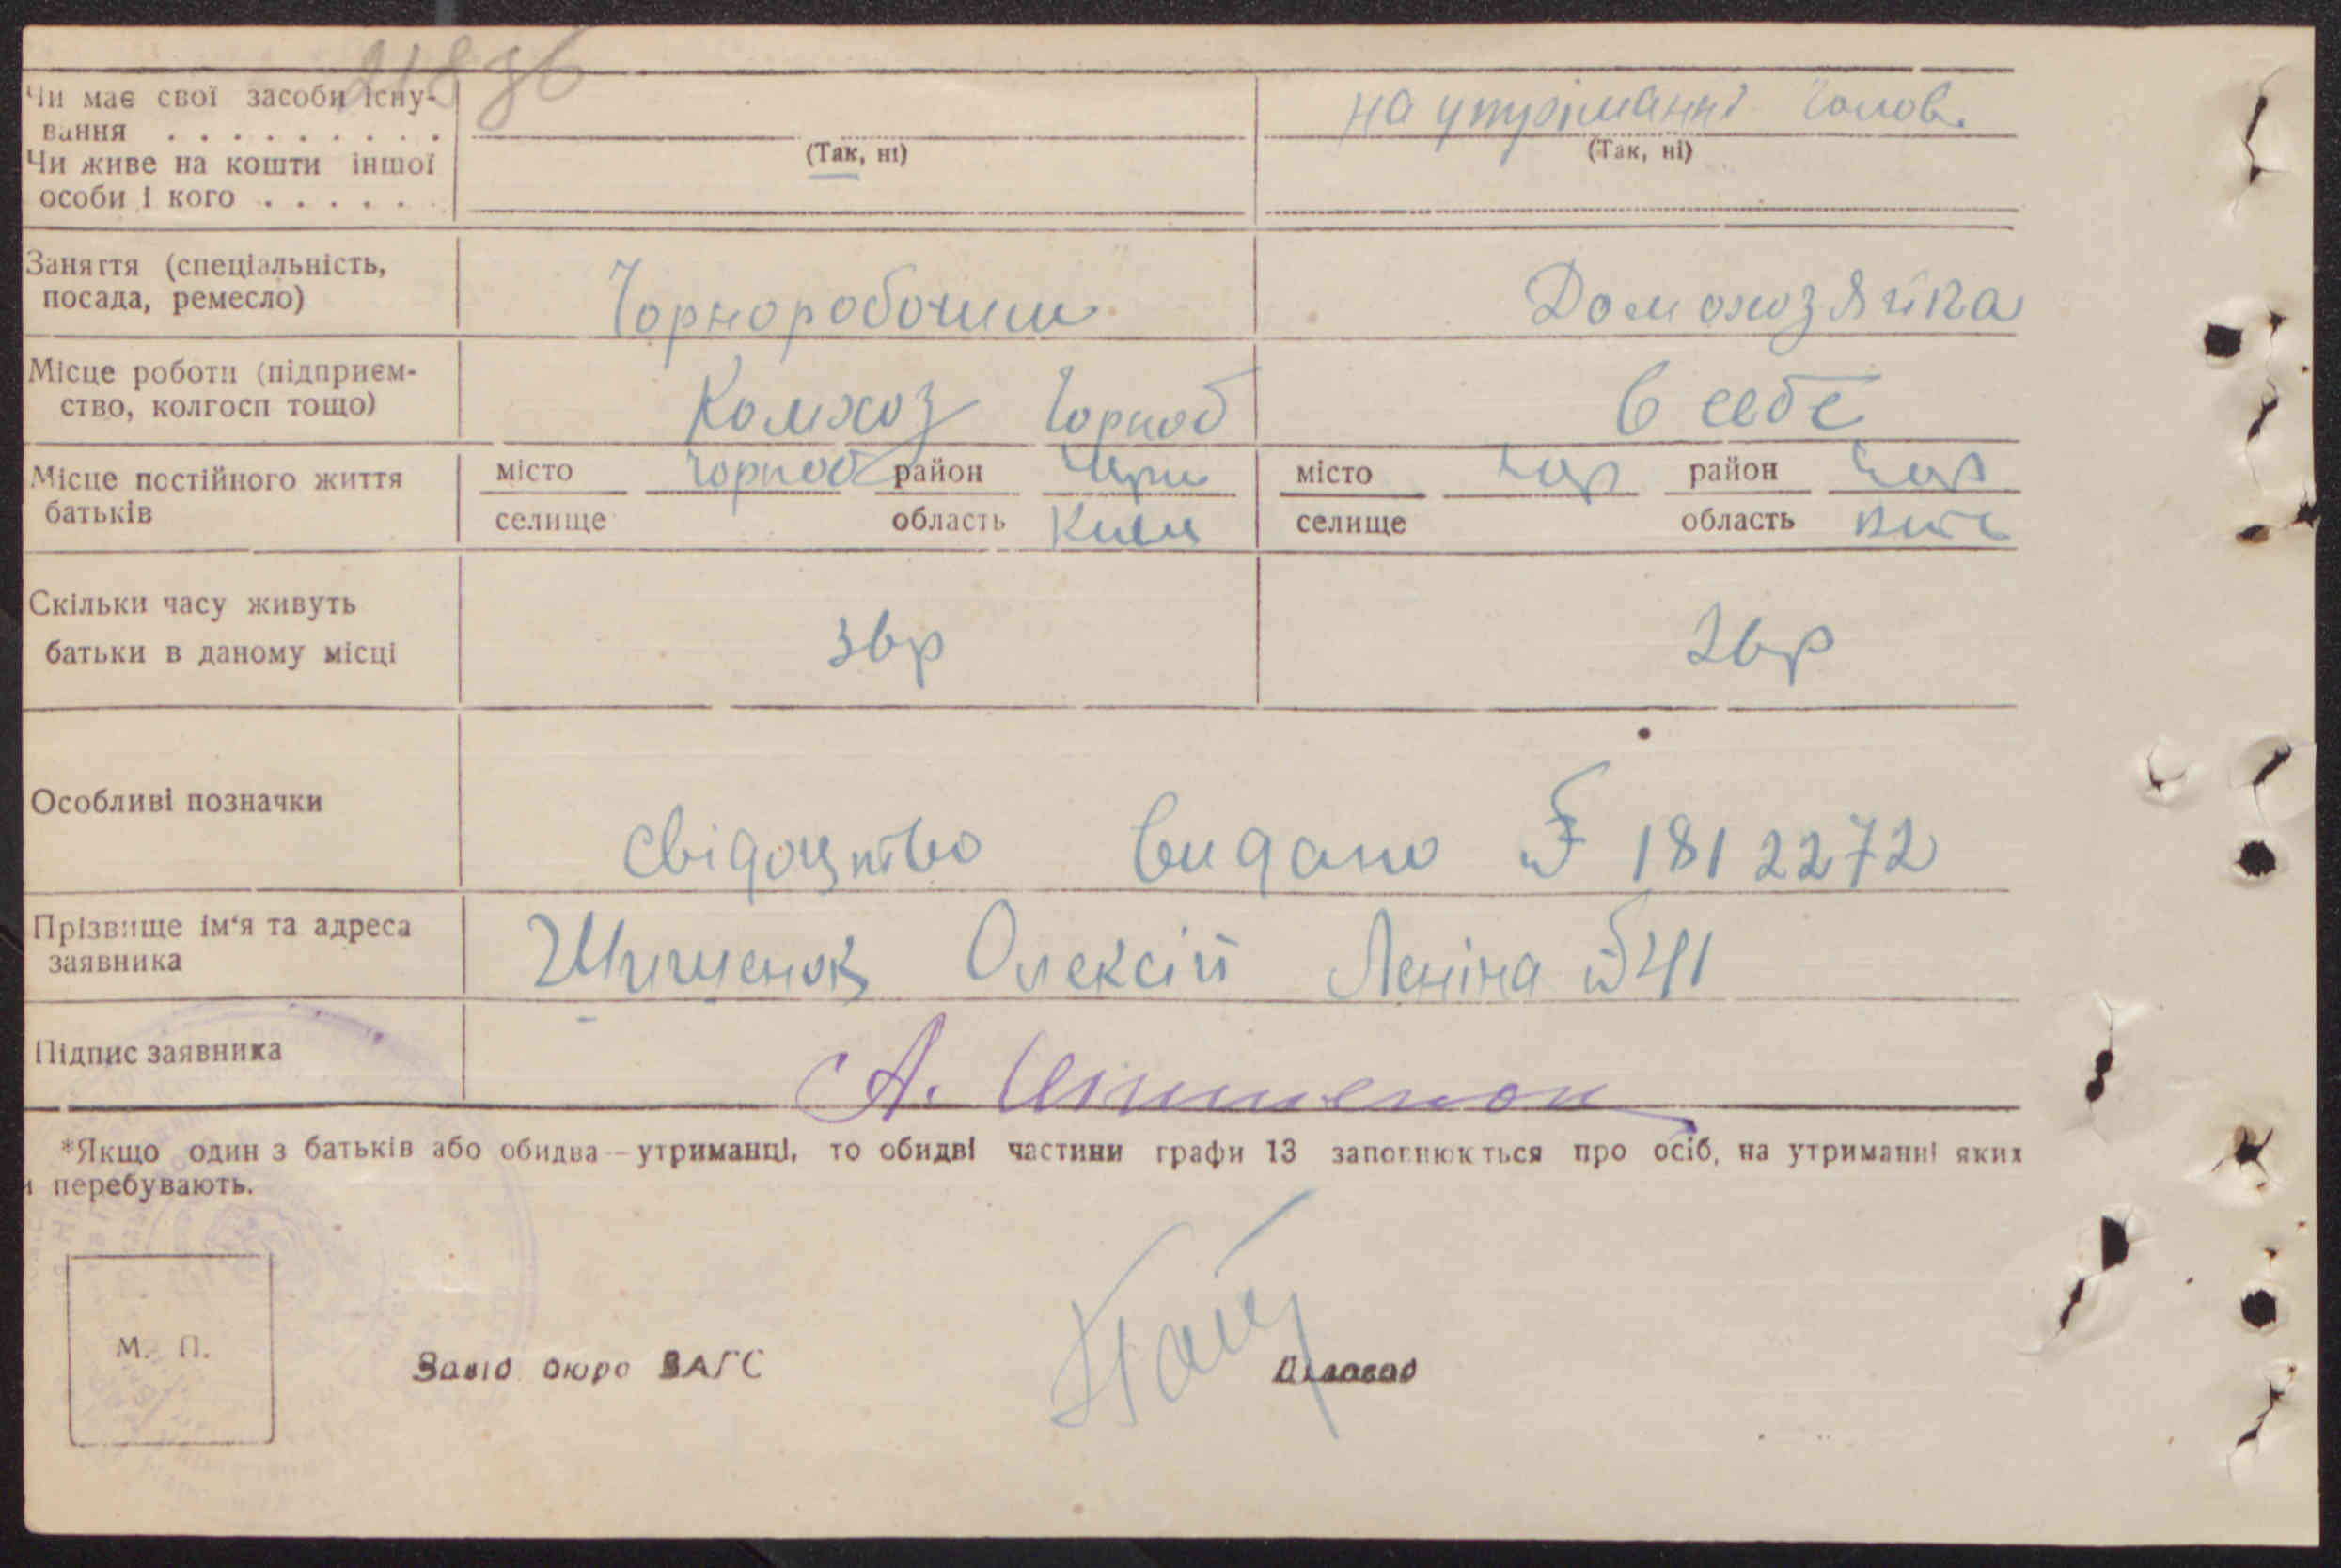 Чи має свої засоби існу-
вання . . . . . . . . .
на утриманні чолов.
(Так, ні) (Так, ні)
Чи живе на кошти іншої
особи і кого . . . . . .
Заняття (спеціальність,
посада, ремесло) Чорноробочий Домохозяйка
Місце роботи (підприєм-
ство, колгосп тощо) Комхоз Чорноб В себе
Місце постійного життя
батьків
місто Чорноб район Чорн місто Чор район Чор
селище область Київ селище область Київ
Скільки часу живуть
батьки в даному місці
Особливі позначки
Свідоцтво видано № 1812272
Прізвище ім'я та адреса
заявника Шишенок Олексій Леніна № 41
Підпис заявника А. Шишенок
*Якщо один з батьків або обидва — утриманці, то обидві частини графи 13 заповнюються про осіб, на утриманні яких
и перебувають.
М. П.
Завід бюро ЗАГС Діловод